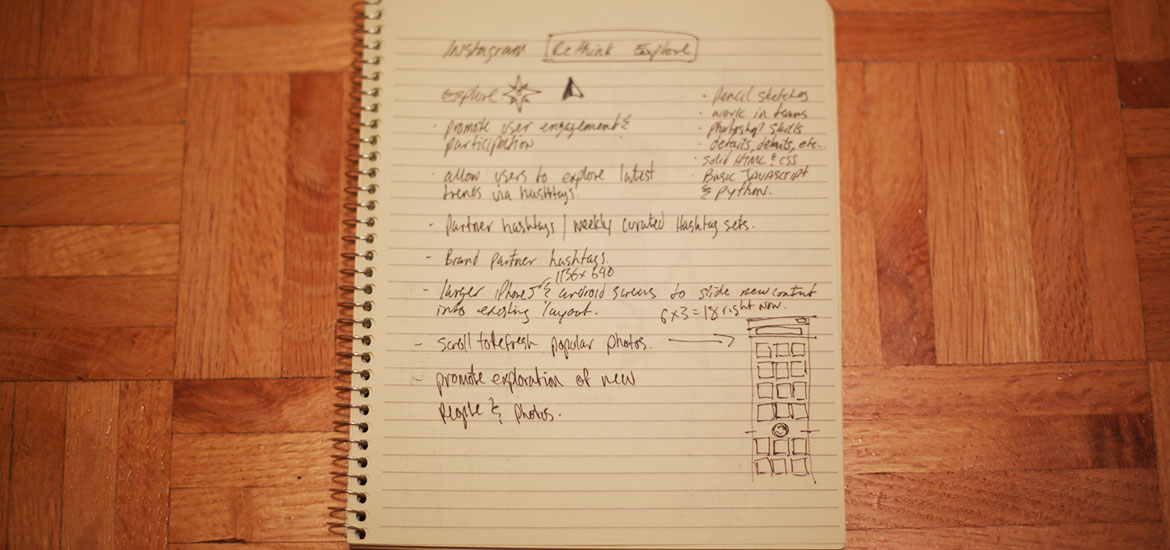 Instagram Rethink Explore
Explore
· promote user engagement &
participation
· allow users to explore latest
trends via hashtags.
- Partner hashtags / weekly curated Hashtag sets.
- Brand partner hashtags.
1136 x 640
- larger iPhone5 & android screens to slide new content
into existing layout.
6 x 3 = 18 right now.
- scroll to Refresh popular photos.
- promote exploration of new
people & photos.
· Pencil sketches
· work in teams
· photoshop skills
· details, details, etc...
· Solid HTML & CSS
· Basic JAVASCRIPT
& python.